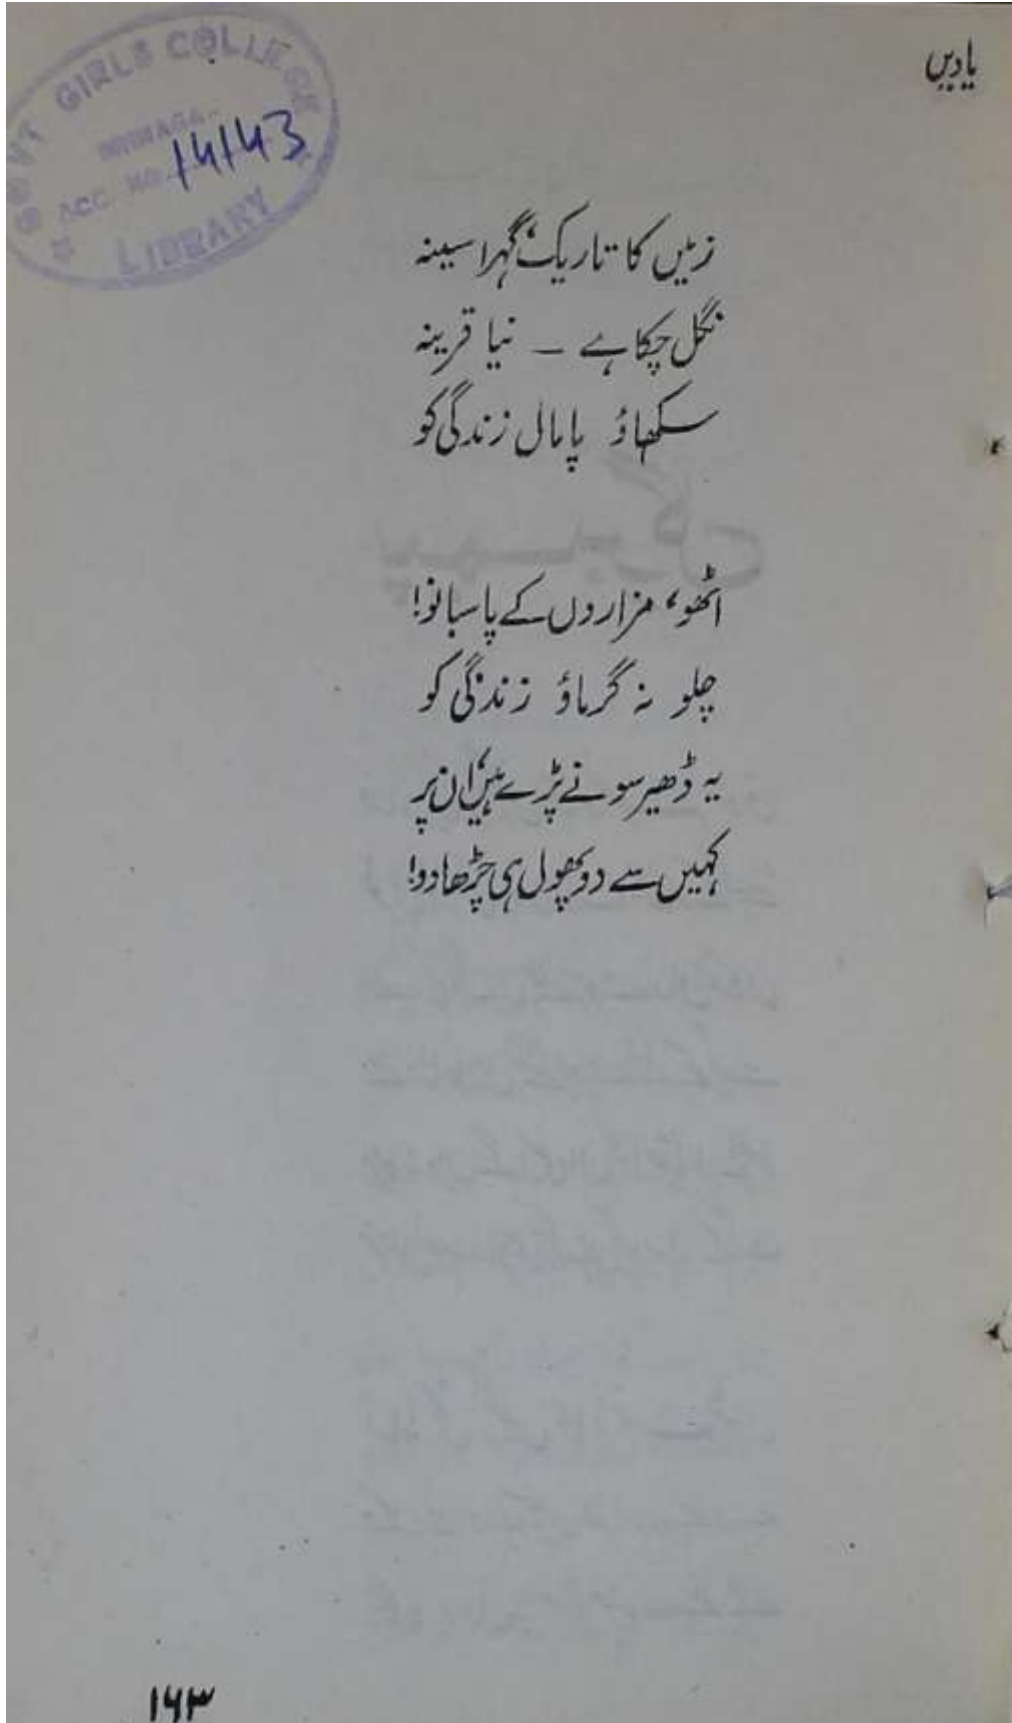 یادیں
GOVT GIRLS COLLEGE
SRINAGA
ACC. NO. 14143
LIBRARY
زمیں کا تاریک، گہرا سینہ
نگل چکا ہے ۔ نیا قرینہ
سکھاؤ پامال زندگی کو
اٹھو، مزاروں کے پاسبانو!
چلو نہ گرماؤ زندگی کو
یہ ڈھیر سونے پڑے ہیں، ان پر
کہیں سے دو پھول ہی چڑھا دو!
۱۶۳